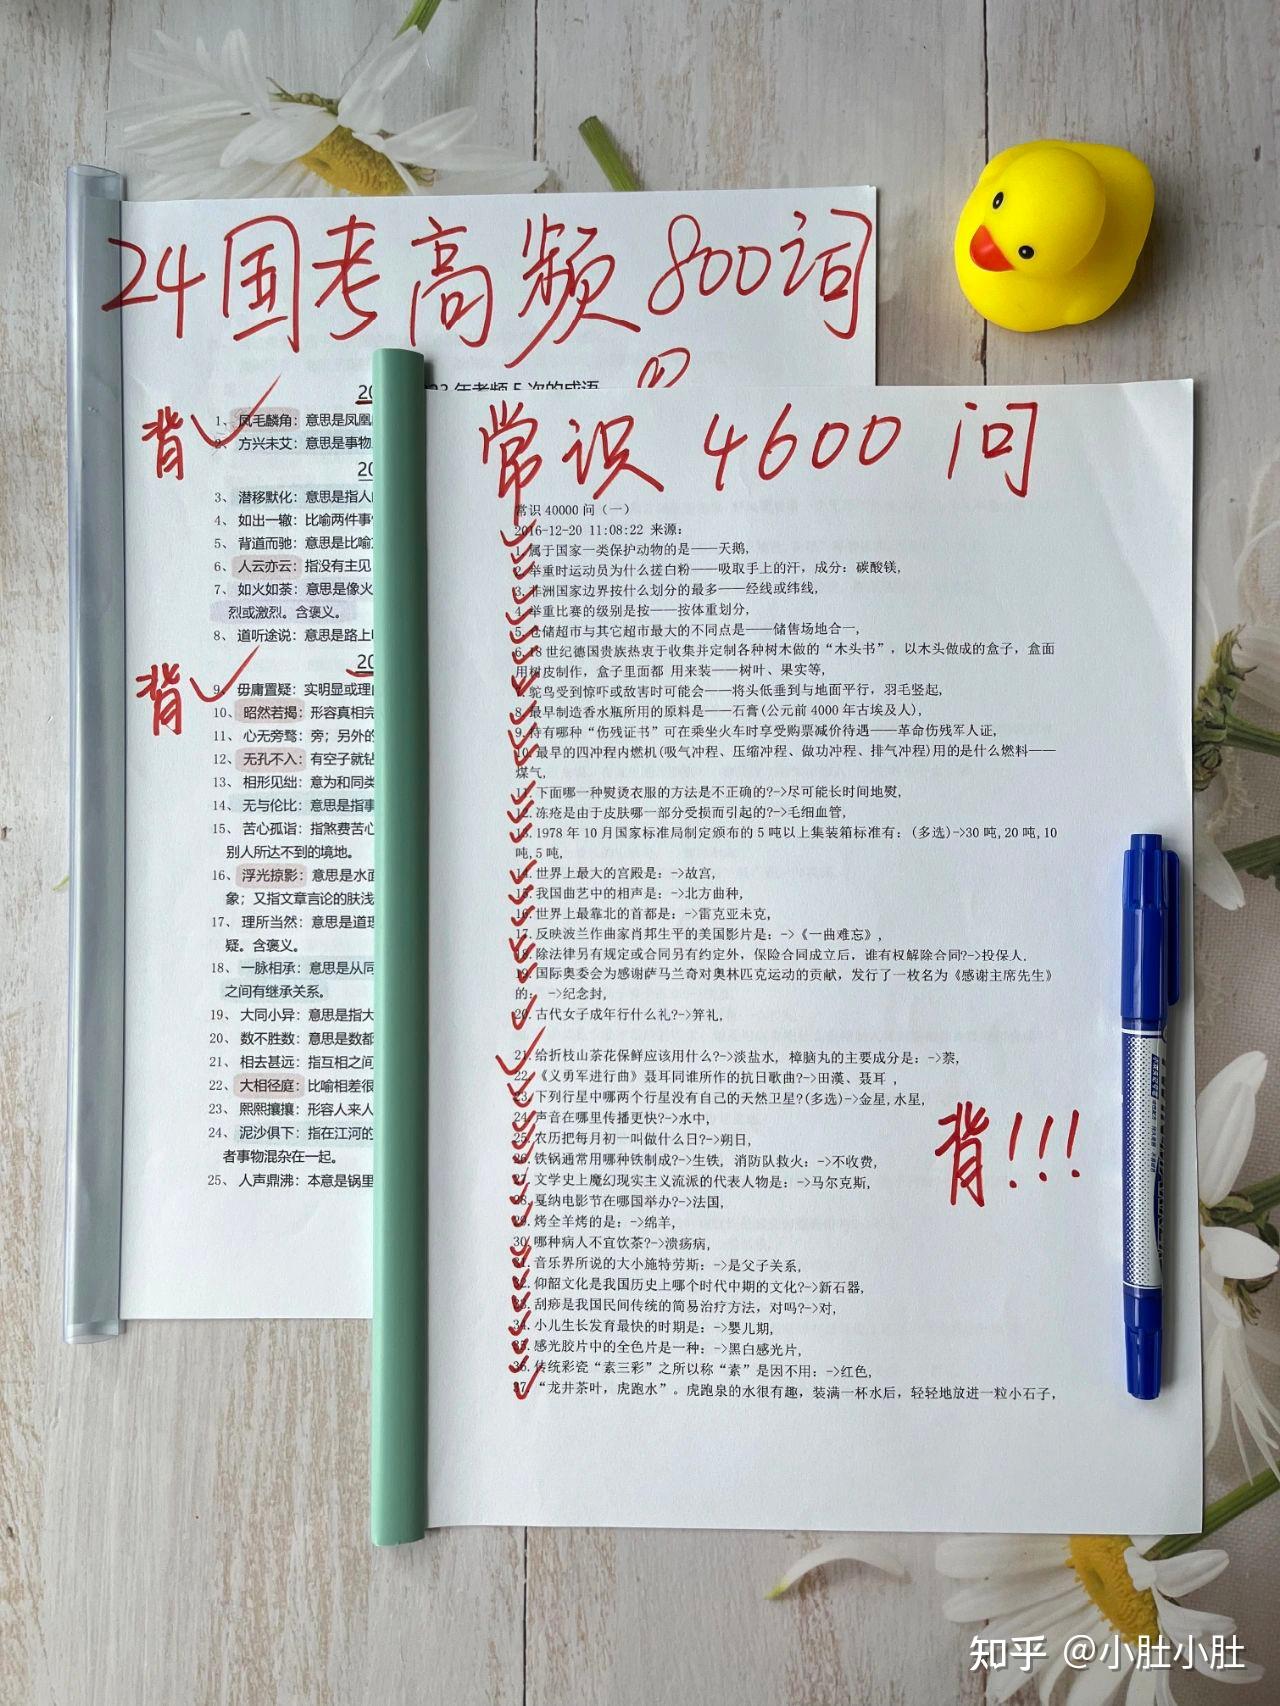 24国考高频800词
年考频5次的成语
背
1、凤毛麟角：意思是凤凰
2、方兴未艾：意思是事物
20
3、潜移默化：意思是指人
4、如出一辙：比喻两件事
5、背道而驰：意思是比喻
6、人云亦云：指没有主见
7、如火如荼：意思是像火
烈或激烈。含褒义。
8、道听途说：意思是路上
20
背
9、毋庸置疑：实明显或理
10、昭然若揭：形容真相完
11、心无旁骛：旁；另外的
12、无孔不入：有空子就钻
13、相形见绌：意为和同类
14、无与伦比：意思是指事
15、苦心孤诣：指煞费苦心
别人所达不到的境地。
16、浮光掠影：意思是水面
象；又指文章言论的肤浅
17、理所当然：意思是道理
疑。含褒义。
18、一脉相承：意思是从同
之间有继承关系。
19、大同小异：意思是指大
20、数不胜数：意思是数都
21、相去甚远：指互相之间
22、大相径庭：比喻相差很
23、熙熙攘攘：形容人来人
24、泥沙俱下：指在江河的
者事物混杂在一起。
25、人声鼎沸：本意是锅里
常识 4600 问
常识40000问（一）
2016-12-20 11:08:22 来源：
1.属于国家一类保护动物的是——天鹅,
2.举重时运动员为什么搓白粉——吸取手上的汗，成分：碳酸镁,
3.非洲国家边界按什么划分的最多——经线或纬线,
4.举重比赛的级别是按——按体重划分,
5.仓储超市与其它超市最大的不同点是——储售场地合一,
6.18世纪德国贵族热衷于收集并定制各种树木做的“木头书”，以木头做成的盒子，盒面
用树皮制作，盒子里面都 用来装——树叶、果实等,
7.鸵鸟受到惊吓或敌害时可能会——将头低垂到与地面平行，羽毛竖起,
8.最早制造香水瓶所用的原料是——石膏(公元前4000年古埃及人),
9.持有哪种“伤残证书”可在乘坐火车时享受购票减价待遇——革命伤残军人证,
10.最早的四冲程内燃机(吸气冲程、压缩冲程、做功冲程、排气冲程)用的是什么燃料——
煤气,
11.下面哪一种熨烫衣服的方法是不正确的?->尽可能长时间地熨,
12.冻疮是由于皮肤哪一部分受损而引起的?->毛细血管,
13.1978年10月国家标准局制定颁布的5吨以上集装箱标准有：(多选)->30吨,20吨,10
吨,5吨,
14.世界上最大的宫殿是：->故宫,
15.我国曲艺中的相声是：->北方曲种,
16.世界上最靠北的首都是：->雷克亚未克,
17.反映波兰作曲家肖邦生平的美国影片是：->《一曲难忘》,
18.除法律另有规定或合同另有约定外，保险合同成立后，谁有权解除合同?->投保人.
19.国际奥委会为感谢萨马兰奇对奥林匹克运动的贡献，发行了一枚名为《感谢主席先生》
的： ->纪念封,
20.古代女子成年行什么礼?->笄礼,
21.给折枝山茶花保鲜应该用什么?->淡盐水, 樟脑丸的主要成分是：->萘,
22.《义勇军进行曲》聂耳同谁所作的抗日歌曲?->田漢、聂耳 ,
23.下列行星中哪两个行星没有自己的天然卫星?(多选)->金星,水星,
24.声音在哪里传播更快?->水中,
25.农历把每月初一叫做什么日?->朔日,
26.铁锅通常用哪种铁制成?->生铁, 消防队救火：->不收费,
27.文学史上魔幻现实主义流派的代表人物是：->马尔克斯,
28.戛纳电影节在哪国举办?->法国,
29.烤全羊烤的是：->绵羊,
30.哪种病人不宜饮茶?->溃疡病,
31.音乐界所说的大小施特劳斯：->是父子关系,
32.仰韶文化是我国历史上哪个时代中期的文化?->新石器,
33.刮痧是我国民间传统的简易治疗方法，对吗?->对,
34.小儿生长发育最快的时期是：->婴儿期,
35.感光胶片中的全色片是一种：->黑白感光片,
36.传统彩瓷“素三彩”之所以称“素”是因不用：->红色,
37.“龙井茶叶，虎跑水”。虎跑泉的水很有趣，装满一杯水后，轻轻地放进一粒小石子,
背!!!
知乎 @小肚小肚